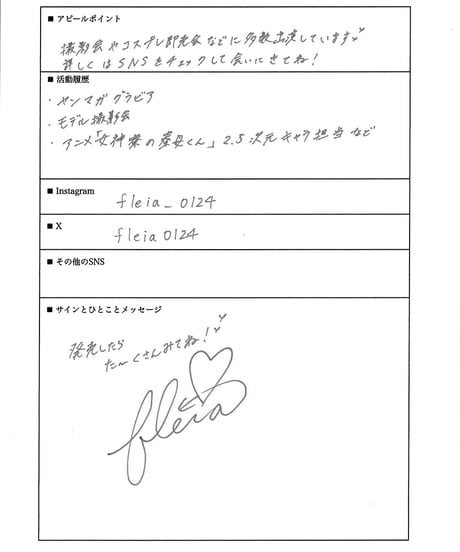 ■ アピールポイント
撮影会やコスプレ即売会などに多数出演しています♡
詳しくはSNSをチェックして会いにきてね！
■ 活動履歴
・ヤンマガグラビア
・モデル撮影会
・アニメ「女神寮の寮母くん」2.5次元キャラ担当など
■ Instagram
fleia_0124
■ X
fleia0124
■ その他のSNS
■ サインとひとことメッセージ
発売したら
た〜くさんみてね！
fleia